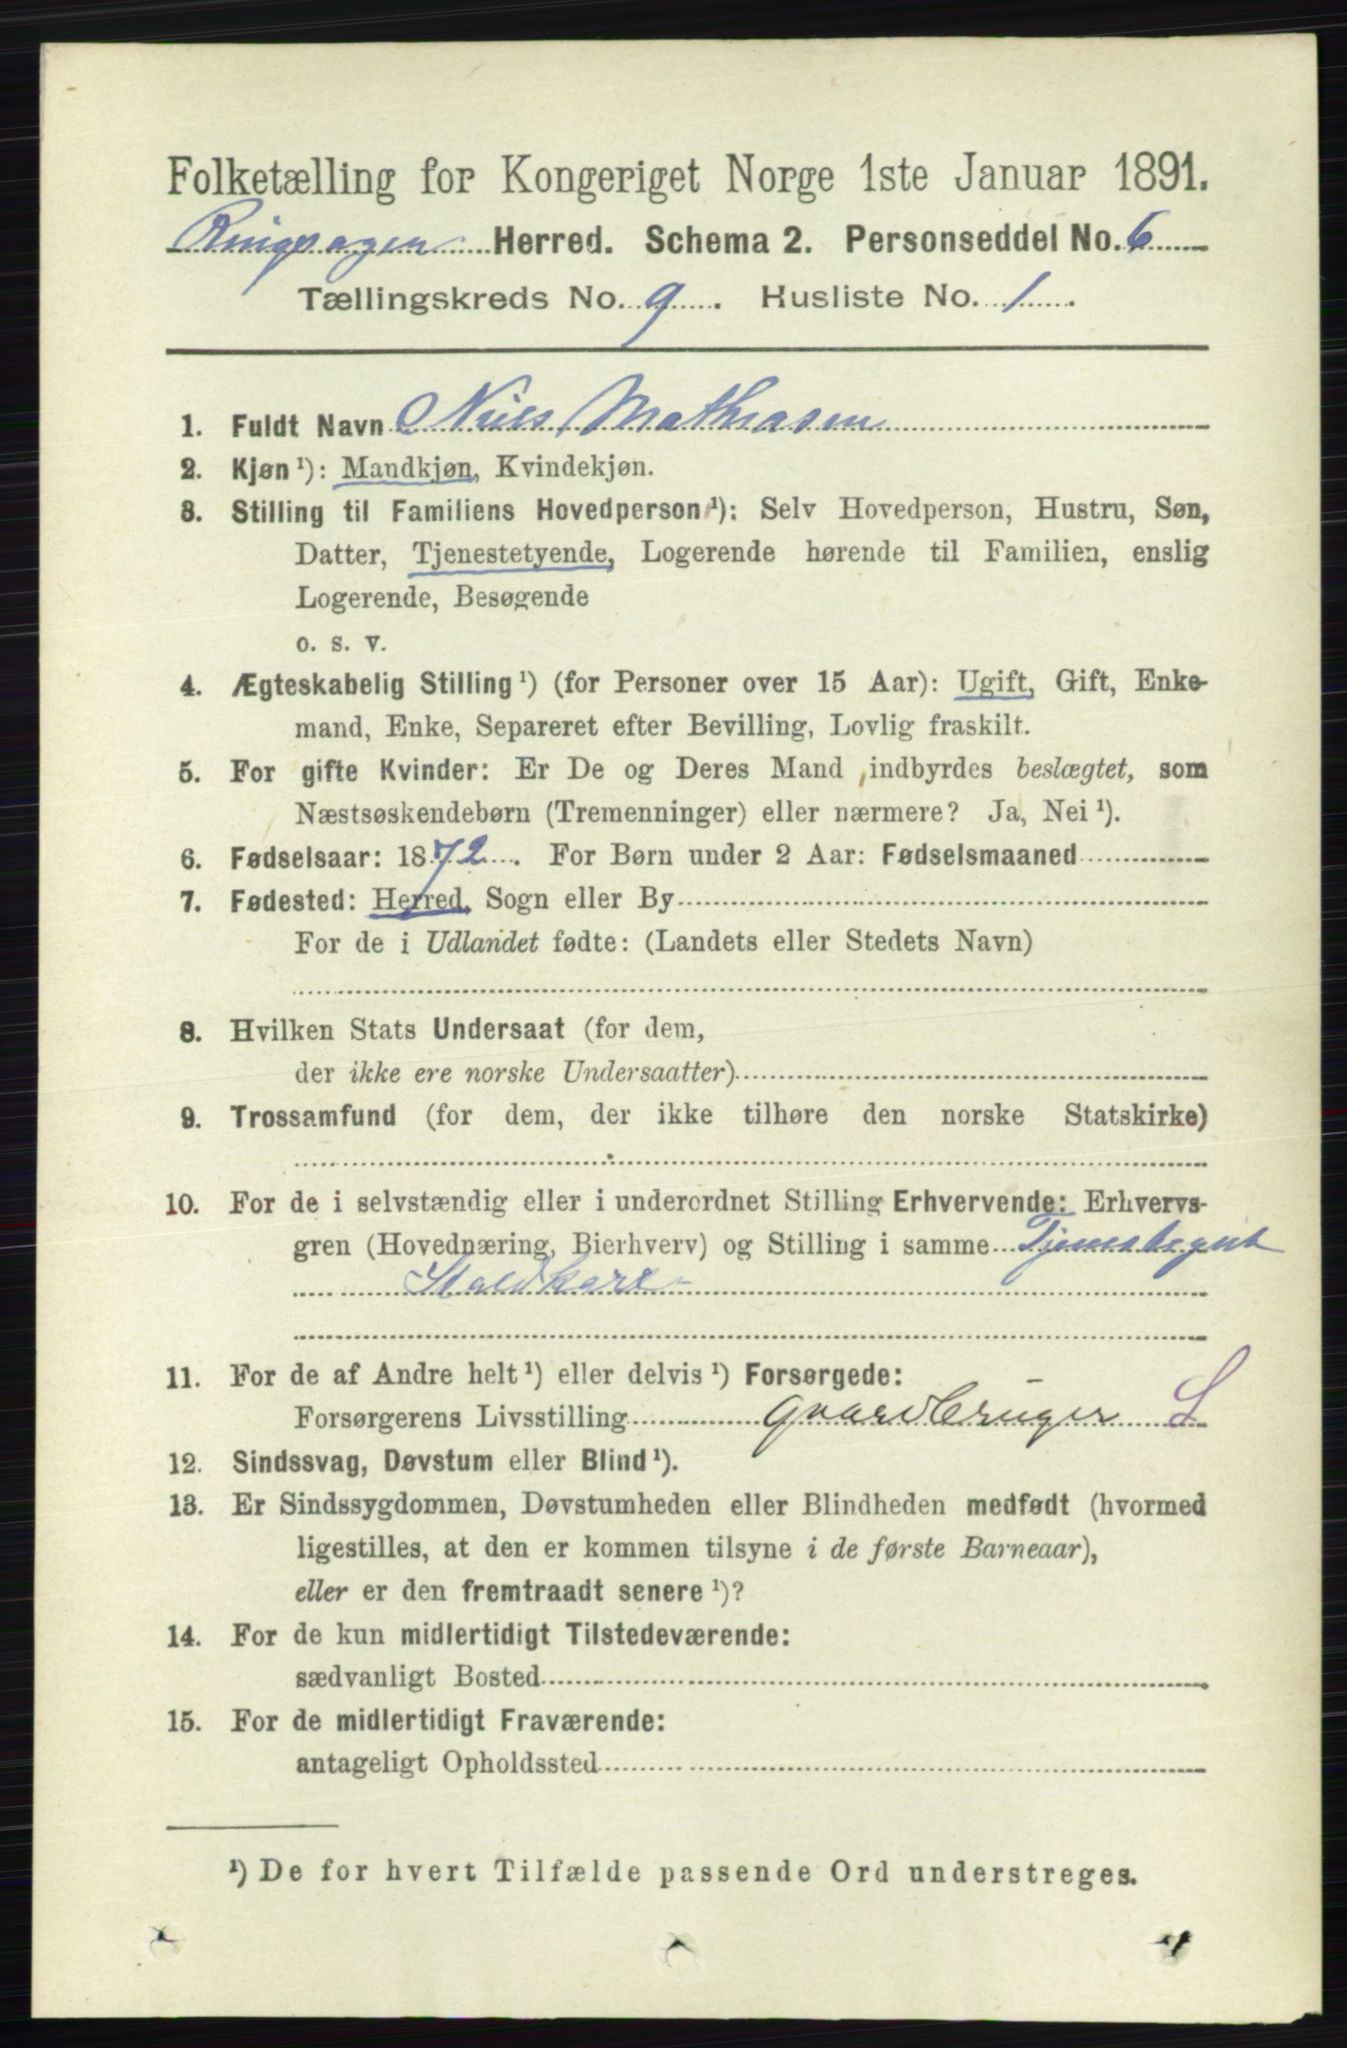 Folketælling for Kongeriget Norge 1ste Januar 1891.
Ringsager Herred. Schema 2. Personseddel No. 6
Tællingskreds No. 9. Husliste No. 1.
1. Fuldt Navn Niels Mathiasen
2. Kjøn¹): Mandkjøn, Kvindekjøn.
3. Stilling til Familiens Hovedperson¹): Selv Hovedperson, Hustru, Søn,
Datter, Tjenestetyende, Logerende hørende til Familien, enslig
Logerende, Besøgende
o. s. v.
4. Ægteskabelig Stilling¹) (for Personer over 15 Aar): Ugift, Gift, Enke-
mand, Enke, Separeret efter Bevilling, Lovlig fraskilt.
5. For gifte Kvinder: Er De og Deres Mand indbyrdes beslægtet, som
Næstsøskendebørn (Tremenninger) eller nærmere? Ja, Nei¹).
6. Fødselsaar: 1872. For Børn under 2 Aar: Fødselsmaaned
7. Fødested: Herred, Sogn eller By
For de i Udlandet fødte: (Landets eller Stedets Navn)
8. Hvilken Stats Undersaat (for dem,
der ikke ere norske Undersaatter)
9. Trossamfund (for dem, der ikke tilhøre den norske Statskirke)
10. For de i selvstændig eller i underordnet Stilling Erhvervende: Erhvervs-
gren (Hovednæring, Bierhverv) og Stilling i samme
Staldkarl
11. For de af Andre helt¹) eller delvis¹) Forsørgede:
Forsørgerens Livsstilling Gaardbruger S
12. Sindssvag, Døvstum eller Blind¹).
13. Er Sindssygdommen, Døvstumheden eller Blindheden medfødt (hvormed
ligestilles, at den er kommen tilsyne i de første Barneaar),
eller er den fremtraadt senere¹)?
14. For de kun midlertidigt Tilstedeværende:
sædvanligt Bosted
15. For de midlertidigt Fraværende:
antageligt Opholdssted
¹) De for hvert Tilfælde passende Ord understreges.